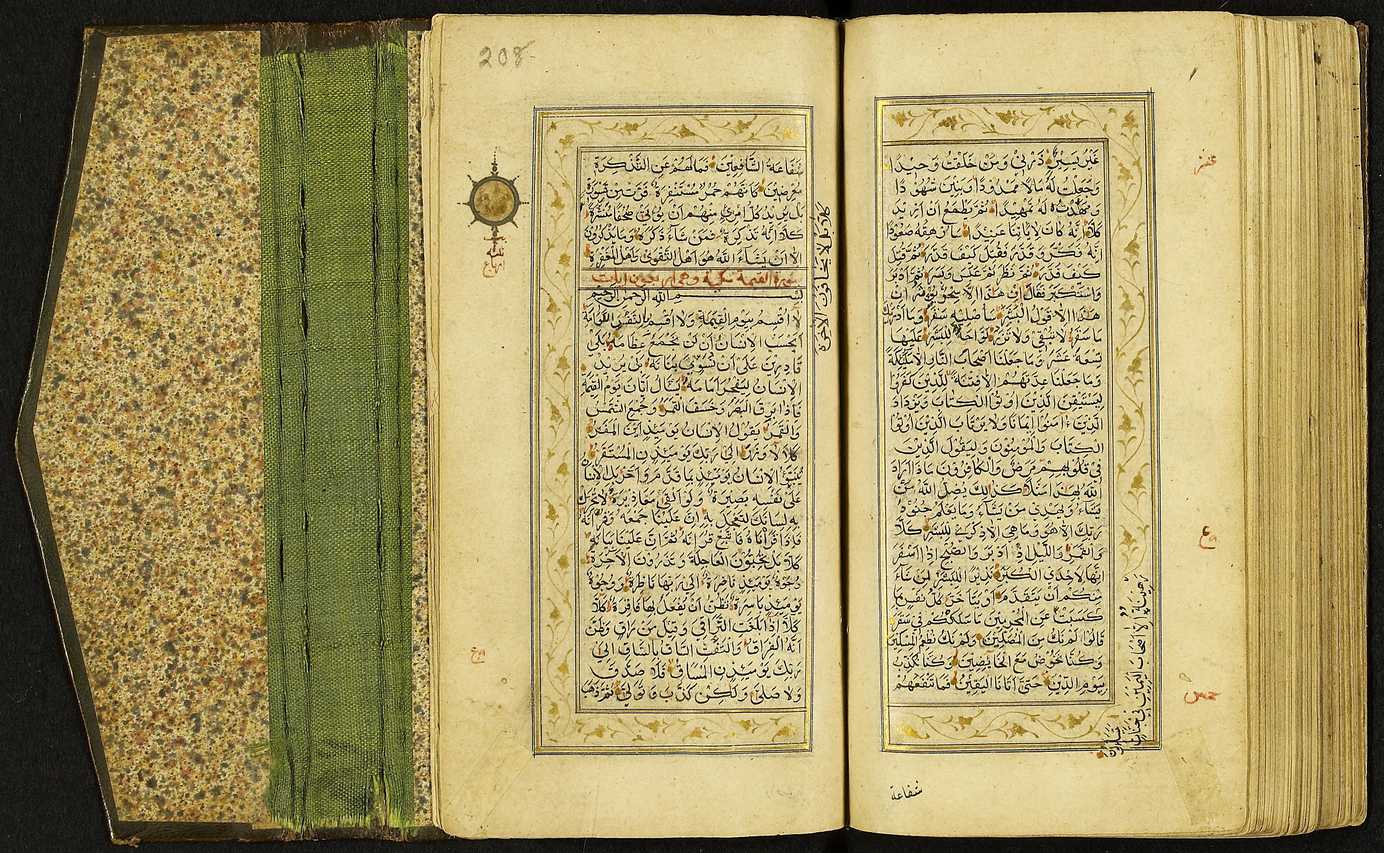 غَيْرُ يَسِيرٍ ذَرْنِي وَمَنْ خَلَقْتُ وَحِيدًا
وَجَعَلْتُ لَهُ مَالًا مَمْدُودًا وَبَنِينَ شُهُودًا
وَمَهَّدْتُ لَهُ تَمْهِيدًا ثُمَّ يَطْمَعُ اَنْ اَزِيدَ
كَلَّا اِنَّهُ كَانَ لِاٰيَاتِنَا عَنِيدًا سَاُرْهِقُهُ صَعُودًا
اِنَّهُ فَكَّرَ وَقَدَّرَ فَقُتِلَ كَيْفَ قَدَّرَ ثُمَّ قُتِلَ
كَيْفَ قَدَّرَ ثُمَّ نَظَرَ ثُمَّ عَبَسَ وَبَسَرَ ثُمَّ اَدْبَرَ
وَاسْتَكْبَرَ فَقَالَ اِنْ هٰذَا اِلَّا سِحْرٌ يُؤْثَرُ اِنْ
هٰذَا اِلَّا قَوْلُ الْبَشَرِ سَاُصْلِيهِ سَقَرَ وَمَا اَدْرٰيكَ
مَا سَقَرُ لَا تُبْقِي وَلَا تَذَرُ لَوَّاحَةٌ لِلْبَشَرِ عَلَيْهَا
تِسْعَةَ عَشَرَ وَمَا جَعَلْنَا اَصْحَابَ النَّارِ اِلَّا مَلٰئِكَةً
وَمَا جَعَلْنَا عِدَّتَهُمْ اِلَّا فِتْنَةً لِلَّذِينَ كَفَرُوا
لِيَسْتَيْقِنَ الَّذِينَ اُوتُوا الْكِتَابَ وَيَزْدَادَ
الَّذِينَ اٰمَنُوا اِيمَانًا وَلَا يَرْتَابَ الَّذِينَ اُوتُوا
الْكِتَابَ وَالْمُؤْمِنُونَ وَلِيَقُولَ الَّذِينَ
فِي قُلُوبِهِمْ مَرَضٌ وَالْكَافِرُونَ مَاذَا اَرَادَ
اللّٰهُ بِهٰذَا مَثَلًا كَذٰلِكَ يُضِلُّ اللّٰهُ مَنْ
يَشَاءُ وَيَهْدِي مَنْ يَشَاءُ وَمَا يَعْلَمُ جُنُودَ
رَبِّكَ اِلَّا هُوَ وَمَا هِيَ اِلَّا ذِكْرٰى لِلْبَشَرِ كَلَّا
وَالْقَمَرِ وَاللَّيْلِ اِذْ اَدْبَرَ وَالصُّبْحِ اِذَا اَسْفَرَ
اِنَّهَا لَاِحْدَى الْكُبَرِ نَذِيرًا لِلْبَشَرِ لِمَنْ شَاءَ
مِنْكُمْ اَنْ يَتَقَدَّمَ اَوْ يَتَاَخَّرَ كُلُّ نَفْسٍ بِمَا
كَسَبَتْ عَنِ الْمُجْرِمِينَ مَا سَلَكَكُمْ فِي سَقَرَ
قَالُوا لَمْ نَكُ مِنَ الْمُصَلِّينَ وَلَمْ نَكُ نُطْعِمُ الْمِسْكِينَ
وَكُنَّا نَخُوضُ مَعَ الْخَائِضِينَ وَكُنَّا نُكَذِّبُ
بِيَوْمِ الدِّينِ حَتّٰى اَتَانَا الْيَقِينُ فَمَا تَنْفَعُهُمْ
رَهِينَةٌ اِلَّا اَصْحَابَ الْيَمِينِ فِي جَنَّاتٍ
يَتَسَاءَلُونَ
شفاعة
عشر
ع
خمس
208
شَفَاعَةُ الشَّافِعِينَ فَمَا لَهُمْ عَنِ التَّذْكِرَةِ
مُعْرِضِينَ كَاَنَّهُمْ حُمُرٌ مُسْتَنْفِرَةٌ فَرَّتْ مِنْ قَسْوَرَةٍ
بَلْ يُرِيدُ كُلُّ امْرِئٍ مِنْهُمْ اَنْ يُؤْتٰى صُحُفًا مُنَشَّرَةً
كَلَّا اِنَّهُ تَذْكِرَةٌ فَمَنْ شَاءَ ذَكَرَهُ وَمَا يَذْكُرُونَ
اِلَّا اَنْ يَشَاءَ اللّٰهُ هُوَ اَهْلُ التَّقْوٰى وَاَهْلُ الْمَغْفِرَةِ
سورة القيمة مكية وهى اربعون ايات
بسم الله الرحمن الرحيم
لَا اُقْسِمُ بِيَوْمِ الْقِيٰمَةِ وَلَا اُقْسِمُ بِالنَّفْسِ اللَّوَّامَةِ
اَيَحْسَبُ الْاِنْسَانُ اَنْ لَنْ نَجْمَعَ عِظَامَهُ بَلٰى
قَادِرِينَ عَلٰى اَنْ نُسَوِّيَ بَنَانَهُ بَلْ يُرِيدُ
الْاِنْسَانُ لِيَفْجُرَ اَمَامَهُ يَسْاَلُ اَيَّانَ يَوْمُ الْقِيٰمَةِ
فَاِذَا بَرِقَ الْبَصَرُ وَخَسَفَ الْقَمَرُ وَجُمِعَ الشَّمْسُ
وَالْقَمَرُ يَقُولُ الْاِنْسَانُ يَوْمَئِذٍ اَيْنَ الْمَفَرُّ
كَلَّا لَا وَزَرَ اِلٰى رَبِّكَ يَوْمَئِذٍ الْمُسْتَقَرُّ
يُنَبَّؤُ الْاِنْسَانُ يَوْمَئِذٍ بِمَا قَدَّمَ وَاَخَّرَ بَلِ الْاِنْسَانُ
عَلٰى نَفْسِهِ بَصِيرَةٌ وَلَوْ اَلْقٰى مَعَاذِيرَهُ لَا تُحَرِّكْ
بِهِ لِسَانَكَ لِتَعْجَلَ بِهِ اِنَّ عَلَيْنَا جَمْعَهُ وَقُرْاٰنَهُ
فَاِذَا قَرَاْنَاهُ فَاتَّبِعْ قُرْاٰنَهُ ثُمَّ اِنَّ عَلَيْنَا بَيَانَهُ
كَلَّا بَلْ تُحِبُّونَ الْعَاجِلَةَ وَتَذَرُونَ الْاٰخِرَةَ
وُجُوهٌ يَوْمَئِذٍ نَاضِرَةٌ اِلٰى رَبِّهَا نَاظِرَةٌ وَوُجُوهٌ
يَوْمَئِذٍ بَاسِرَةٌ تَظُنُّ اَنْ يُفْعَلَ بِهَا فَاقِرَةٌ كَلَّا
اِذَا بَلَغَتِ التَّرَاقِيَ وَقِيلَ مَنْ رَاقٍ وَظَنَّ
اَنَّهُ الْفِرَاقُ وَالْتَفَّتِ السَّاقُ بِالسَّاقِ اِلٰى
رَبِّكَ يَوْمَئِذٍ الْمَسَاقُ فَلَا صَدَّقَ
وَلَا صَلّٰى وَلٰكِنْ كَذَّبَ وَتَوَلّٰى ثُمَّ ذَهَبَ
كَلَّا بَلْ لَا يَخَافُونَ الْاٰخِرَةَ